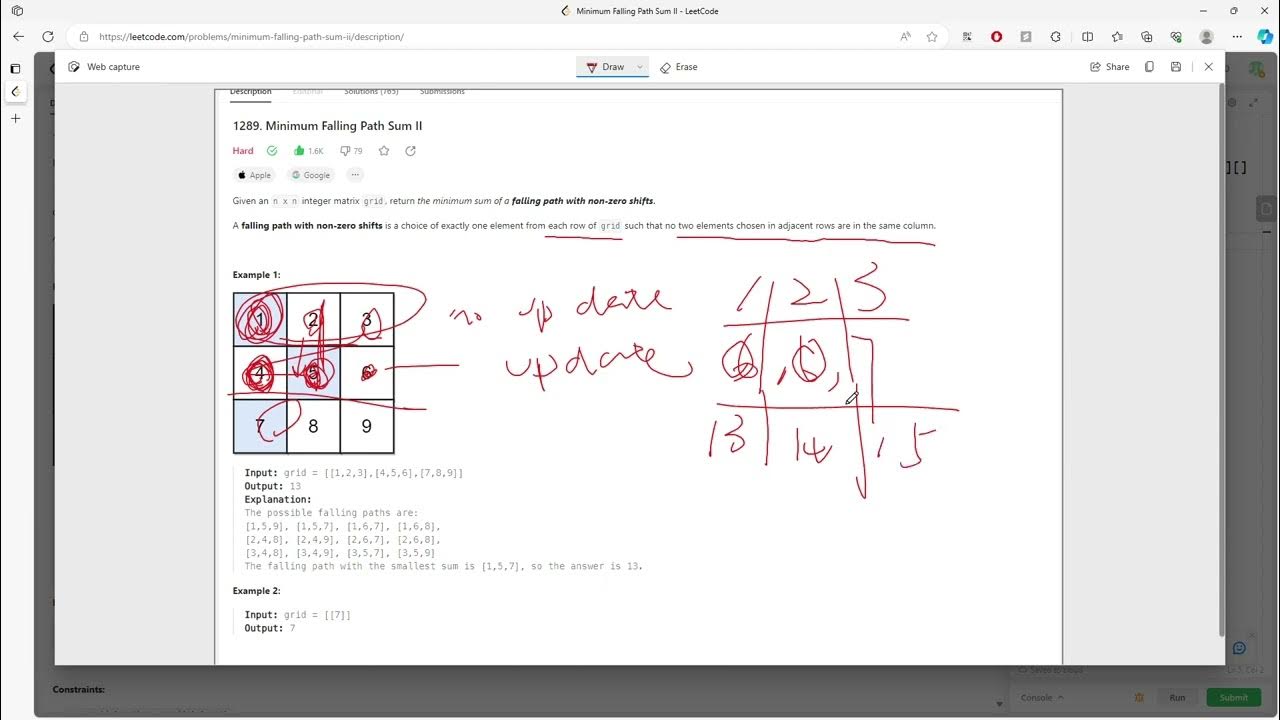 Minimum Falling Path Sum II - LeetCode
https://leetcode.com/problems/minimum-falling-path-sum-ii/description/
Web capture
Draw
Erase
Share
Description
Editorial
Solutions (765)
Submissions
1289. Minimum Falling Path Sum II
Hard
1.6K
79
Apple
Google
Given an n x n integer matrix grid, return the minimum sum of a falling path with non-zero shifts.
A falling path with non-zero shifts is a choice of exactly one element from each row of grid such that no two elements chosen in adjacent rows are in the same column.
Example 1:
1 2 3
4 5 6
7 8 9
no update
update
1 2 3
6, 6, 7
13 14 15
Input: grid = [[1,2,3],[4,5,6],[7,8,9]]
Output: 13
Explanation:
The possible falling paths are:
[1,5,9], [1,5,7], [1,6,7], [1,6,8],
[2,4,8], [2,4,9], [2,6,7], [2,6,8],
[3,4,8], [3,4,9], [3,5,7], [3,5,9]
The falling path with the smallest sum is [1,5,7], so the answer is 13.
Example 2:
Input: grid = [[7]]
Output: 7
Constraints:
][]
Saved to cloud
Ln 5, Col 2
Console
Run
Submit